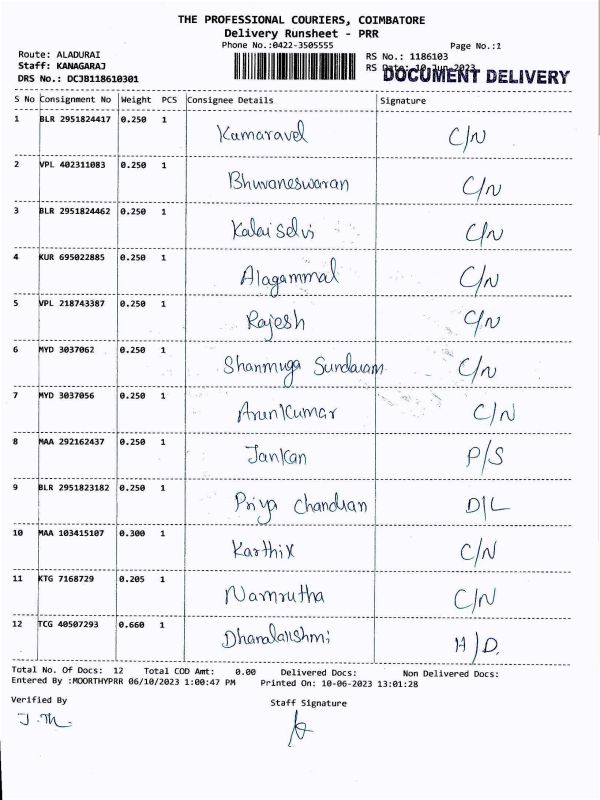 THE PROFESSIONAL COURIERS, COIMBATORE
Delivery Runsheet - PRR
Phone No.:0422-3505555 Page No.:1
Route: ALADURAI RS No.: 1186103
Staff: KANAGARAJ RS Date: 10-Jun-2023
DRS No.: DCJB118610301 DOCUMENT DELIVERY
S No Consignment No Weight PCS Consignee Details Signature
1 BLR 2951824417 0.250 1 Kumaravel C/N
2 VPL 402311083 0.250 1 Bhuvaneswaran C/N
3 BLR 2951824462 0.250 1 Kalai Selvi C/N
4 KUR 695022885 0.250 1 Alagammal C/N
5 VPL 218743387 0.250 1 Rajesh C/N
6 MYD 3037062 0.250 1 Shanmuga Sundaram C/N
7 MYD 3037056 0.250 1 ArunKumar C/N
8 MAA 292162437 0.250 1 Jankan P/S
9 BLR 2951823182 0.250 1 Priya Chandran D/L
10 MAA 103415107 0.300 1 Karthik C/N
11 KTG 7168729 0.205 1 Namrutha C/N
12 TCG 40507293 0.660 1 Dhanalakshmi H/D.
Total No. Of Docs: 12 Total COD Amt: 0.00 Delivered Docs: Non Delivered Docs:
Entered By :MOORTHYPRR 06/10/2023 1:00:47 PM Printed On: 10-06-2023 13:01:28
Verified By Staff Signature